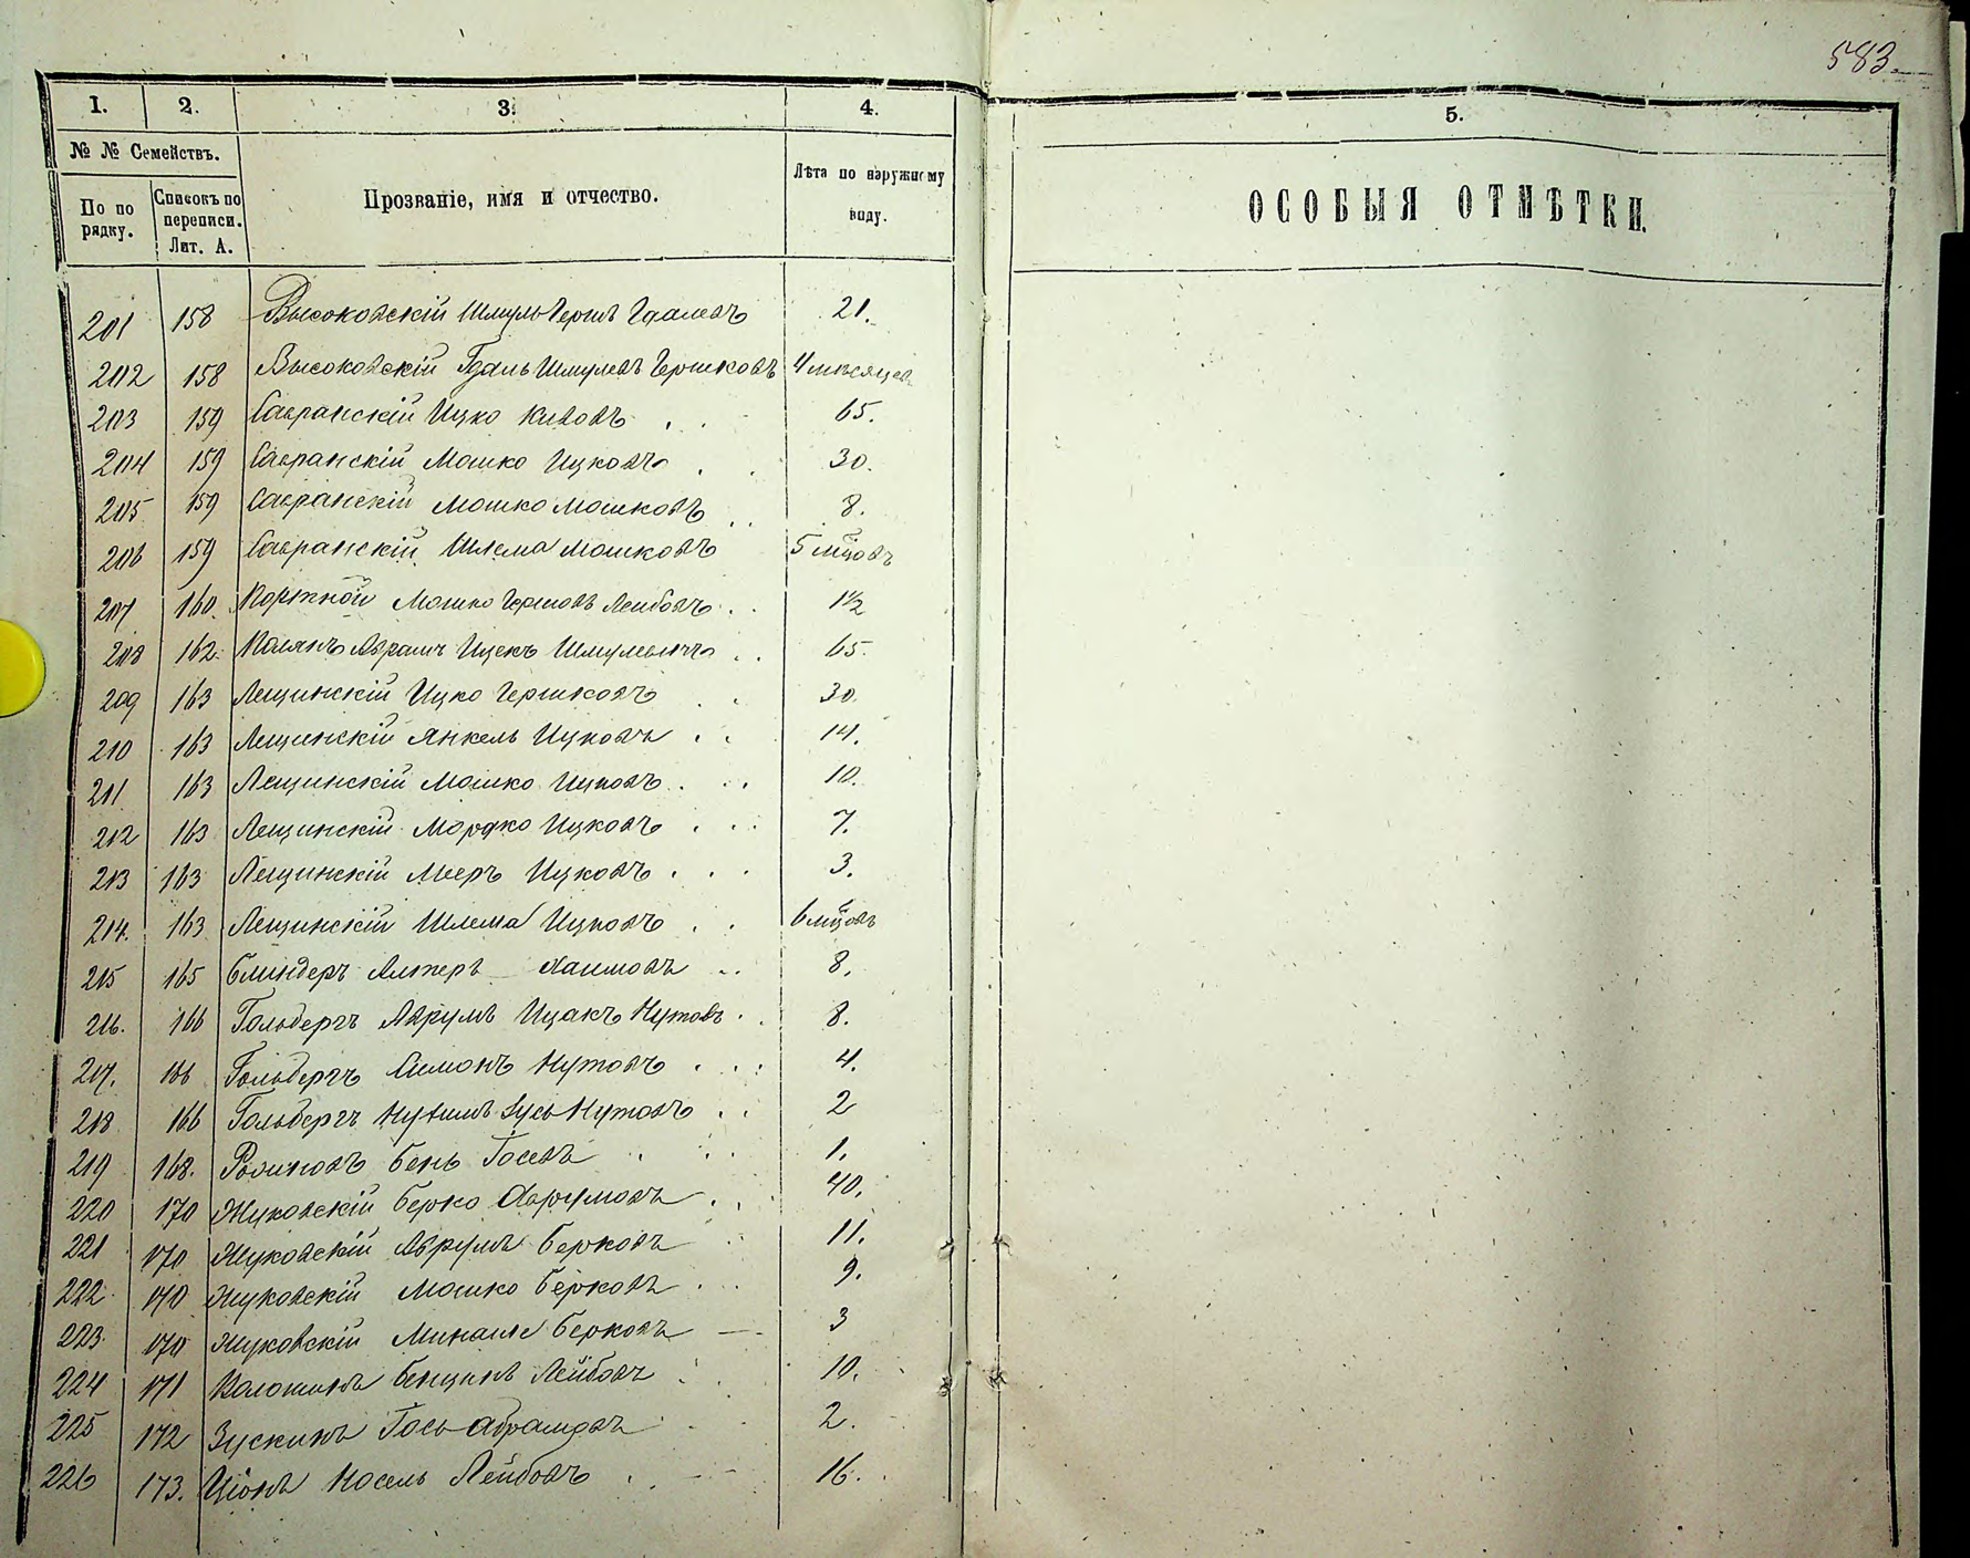 583.
1. 2. 3. 4. 5.
№ № Семействъ.
По по рядку.
Списокъ по переписи. Лит. А.
Прозваніе, имя и отчество.
Лѣта по наружному виду.
ОСОБЫЯ ОТМѢТКИ.
201 158 Высоковскій Шмуль Гершъ Гдалевъ 21.
202 158 Высоковскій Гдаль Шмулевъ Гершковъ 4 мѣсяцев
203 159 Савранскій Ицко Кивовъ 65.
204 159 Савранскій Мошко Ицковъ 30.
205 159 Савранскій Мошко Мошковъ 8.
206 159 Савранскій Шлема Мошковъ 5 мцовъ
207 160. Коржной Мошко Гершовъ Лейбовъ 1½
208 162. Аврамъ Ицекъ Шмулевичъ 65.
209 163 Лещинскій Ицко Гершковъ 30.
210 163 Лещинскій Янкель Ицковъ 14.
211 163 Лещинскій Мошко Ицковъ 10.
212 163 Лещинскій Мордко Ицковъ 7.
213 163 Лещинскій Мееръ Ицковъ 3.
214. 163 Лещинскій Шлема Ицковъ 6 мцовъ
215 165 Блиндеръ Алтеръ Хаимовъ 8.
216. 166 Гольбергъ Аврумъ Ицакъ Нутовъ 8.
217. 166 Гольбергъ Симонъ Нутовъ 4.
218 166 Гольбергъ Зусь Нутовъ 2
219 168. Бень Іосевъ 1.
220 170 Жуковскій Берко Аврумовъ 40.
221 170 Жуковскій Аврумъ Берковъ 11.
222 170 Жуковскій Мошко Берковъ 9.
223 170 Жуковскій Берковъ 3
224 171 Колошинъ Бенцинъ Лейбовъ 10.
225 172 Зускинъ Іось Абрамовъ 2.
226 173. Ціонъ Носель Лейбовъ 16.